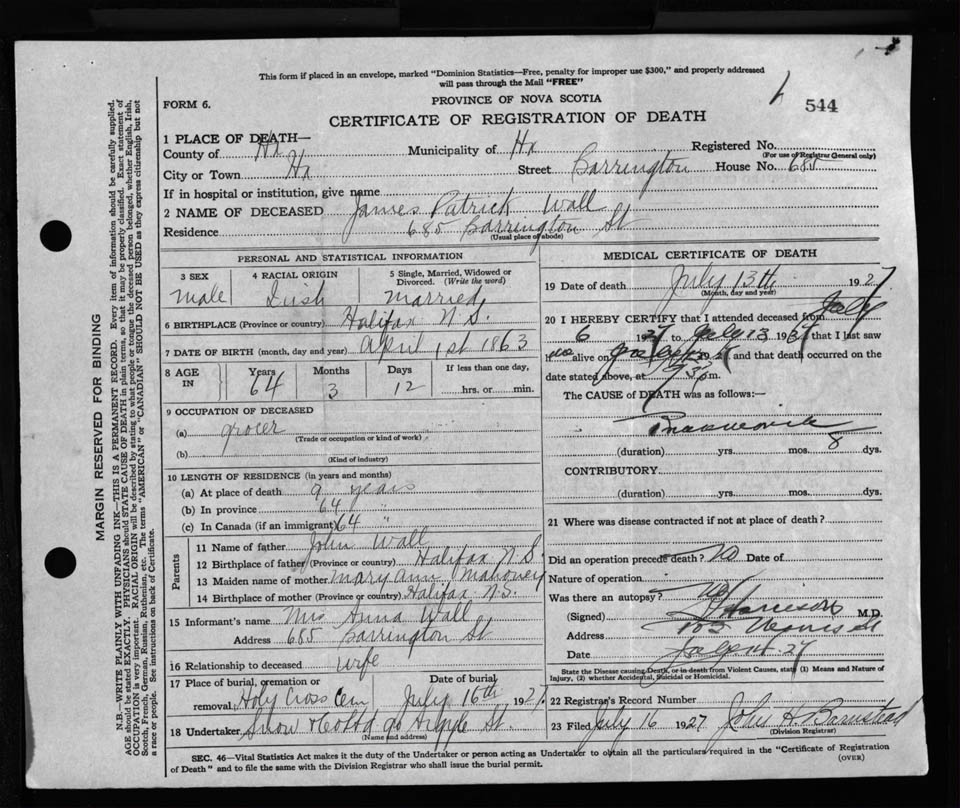 This form if placed in an envelope, marked "Dominion Statistics—Free, penalty for improper use $300," and properly addressed
will pass through the Mail "FREE"
FORM 6.
PROVINCE OF NOVA SCOTIA
544
CERTIFICATE OF REGISTRATION OF DEATH
1 PLACE OF DEATH—
County of Hx Municipality of Hx Registered No.
(For use of Registrar General only)
City or Town Hx Street Barrington House No. 685
If in hospital or institution, give name
2 NAME OF DECEASED James Patrick Wall
Residence 685 Barrington St
(Usual place of abode)
PERSONAL AND STATISTICAL INFORMATION
3 SEX 4 RACIAL ORIGIN 5 Single, Married, Widowed or
Divorced. (Write the word)
male Irish married
6 BIRTHPLACE (Province or country) Halifax N.S.
7 DATE OF BIRTH (month, day and year) April 1st 1863
8 AGE IN Years Months Days If less than one day,
64 3 12 hrs. or min.
9 OCCUPATION OF DECEASED
(a) grocer
(Trade or occupation or kind of work)
(b)
(Kind of industry)
10 LENGTH OF RESIDENCE (in years and months)
(a) At place of death 9 years
(b) In province 64 "
(c) In Canada (if an immigrant) 64 "
Parents
11 Name of father John Wall
12 Birthplace of father (Province or country) Halifax N.S.
13 Maiden name of mother Mary Ann Mahoney
14 Birthplace of mother (Province or country) Halifax N.S.
15 Informant's name Mrs Anna Wall
Address 685 Barrington St
16 Relationship to deceased wife
17 Place of burial, cremation or Date of burial
removal Holy Cross Cem July 16th 1927
18 Undertaker Snow & Co Ltd 90 Argyle St.
(Name and address)
MEDICAL CERTIFICATE OF DEATH
19 Date of death July 13th 1927
(Month, day and year)
20 I HEREBY CERTIFY that I attended deceased from July
6 1927 to July 13 1927 that I last saw
alive on 19 and that death occurred on the
date stated above, at m.
The CAUSE of DEATH was as follows:—
(duration) yrs. mos. 8 dys.
CONTRIBUTORY
(duration) yrs. mos. dys.
21 Where was disease contracted if not at place of death?
Did an operation precede death? No Date of
Nature of operation
Was there an autopsy? No
(Signed) M.D.
Address
Date 27
State the Disease causing Death, or in death from Violent Causes, state (1) Means and Nature of
Injury, (2) whether Accidental, Suicidal or Homicidal.
22 Registrar's Record Number
23 Filed July 16 1927 John H. Barnstead
(Division Registrar)
SEC. 46—Vital Statistics Act makes it the duty of the Undertaker or person acting as Undertaker to obtain all the particulars required in the "Certificate of Registration
of Death" and to file the same with the Division Registrar who shall issue the burial permit.
(OVER)
MARGIN RESERVED FOR BINDING
N.B.—WRITE PLAINLY WITH UNFADING INK—THIS IS A PERMANENT RECORD. Every item of information should be carefully supplied.
AGE should be stated EXACTLY. PHYSICIANS should STATE CAUSE OF DEATH in plain terms, so that it may be properly classified. Exact statement of
OCCUPATION is very important. RACIAL ORIGIN will be described by stating to what people or tongue the deceased person belonged, whether English, Irish,
Scotch, French, German, Russian, Ruthenian, etc. The terms "AMERICAN" or "CANADIAN" SHOULD NOT BE USED as they express citizenship but not
a race or people. See instructions on back of Certificate.